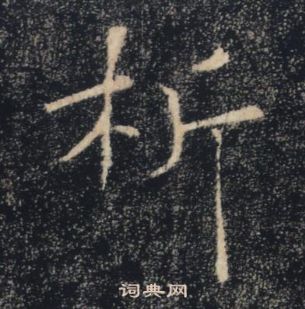 析
词典网